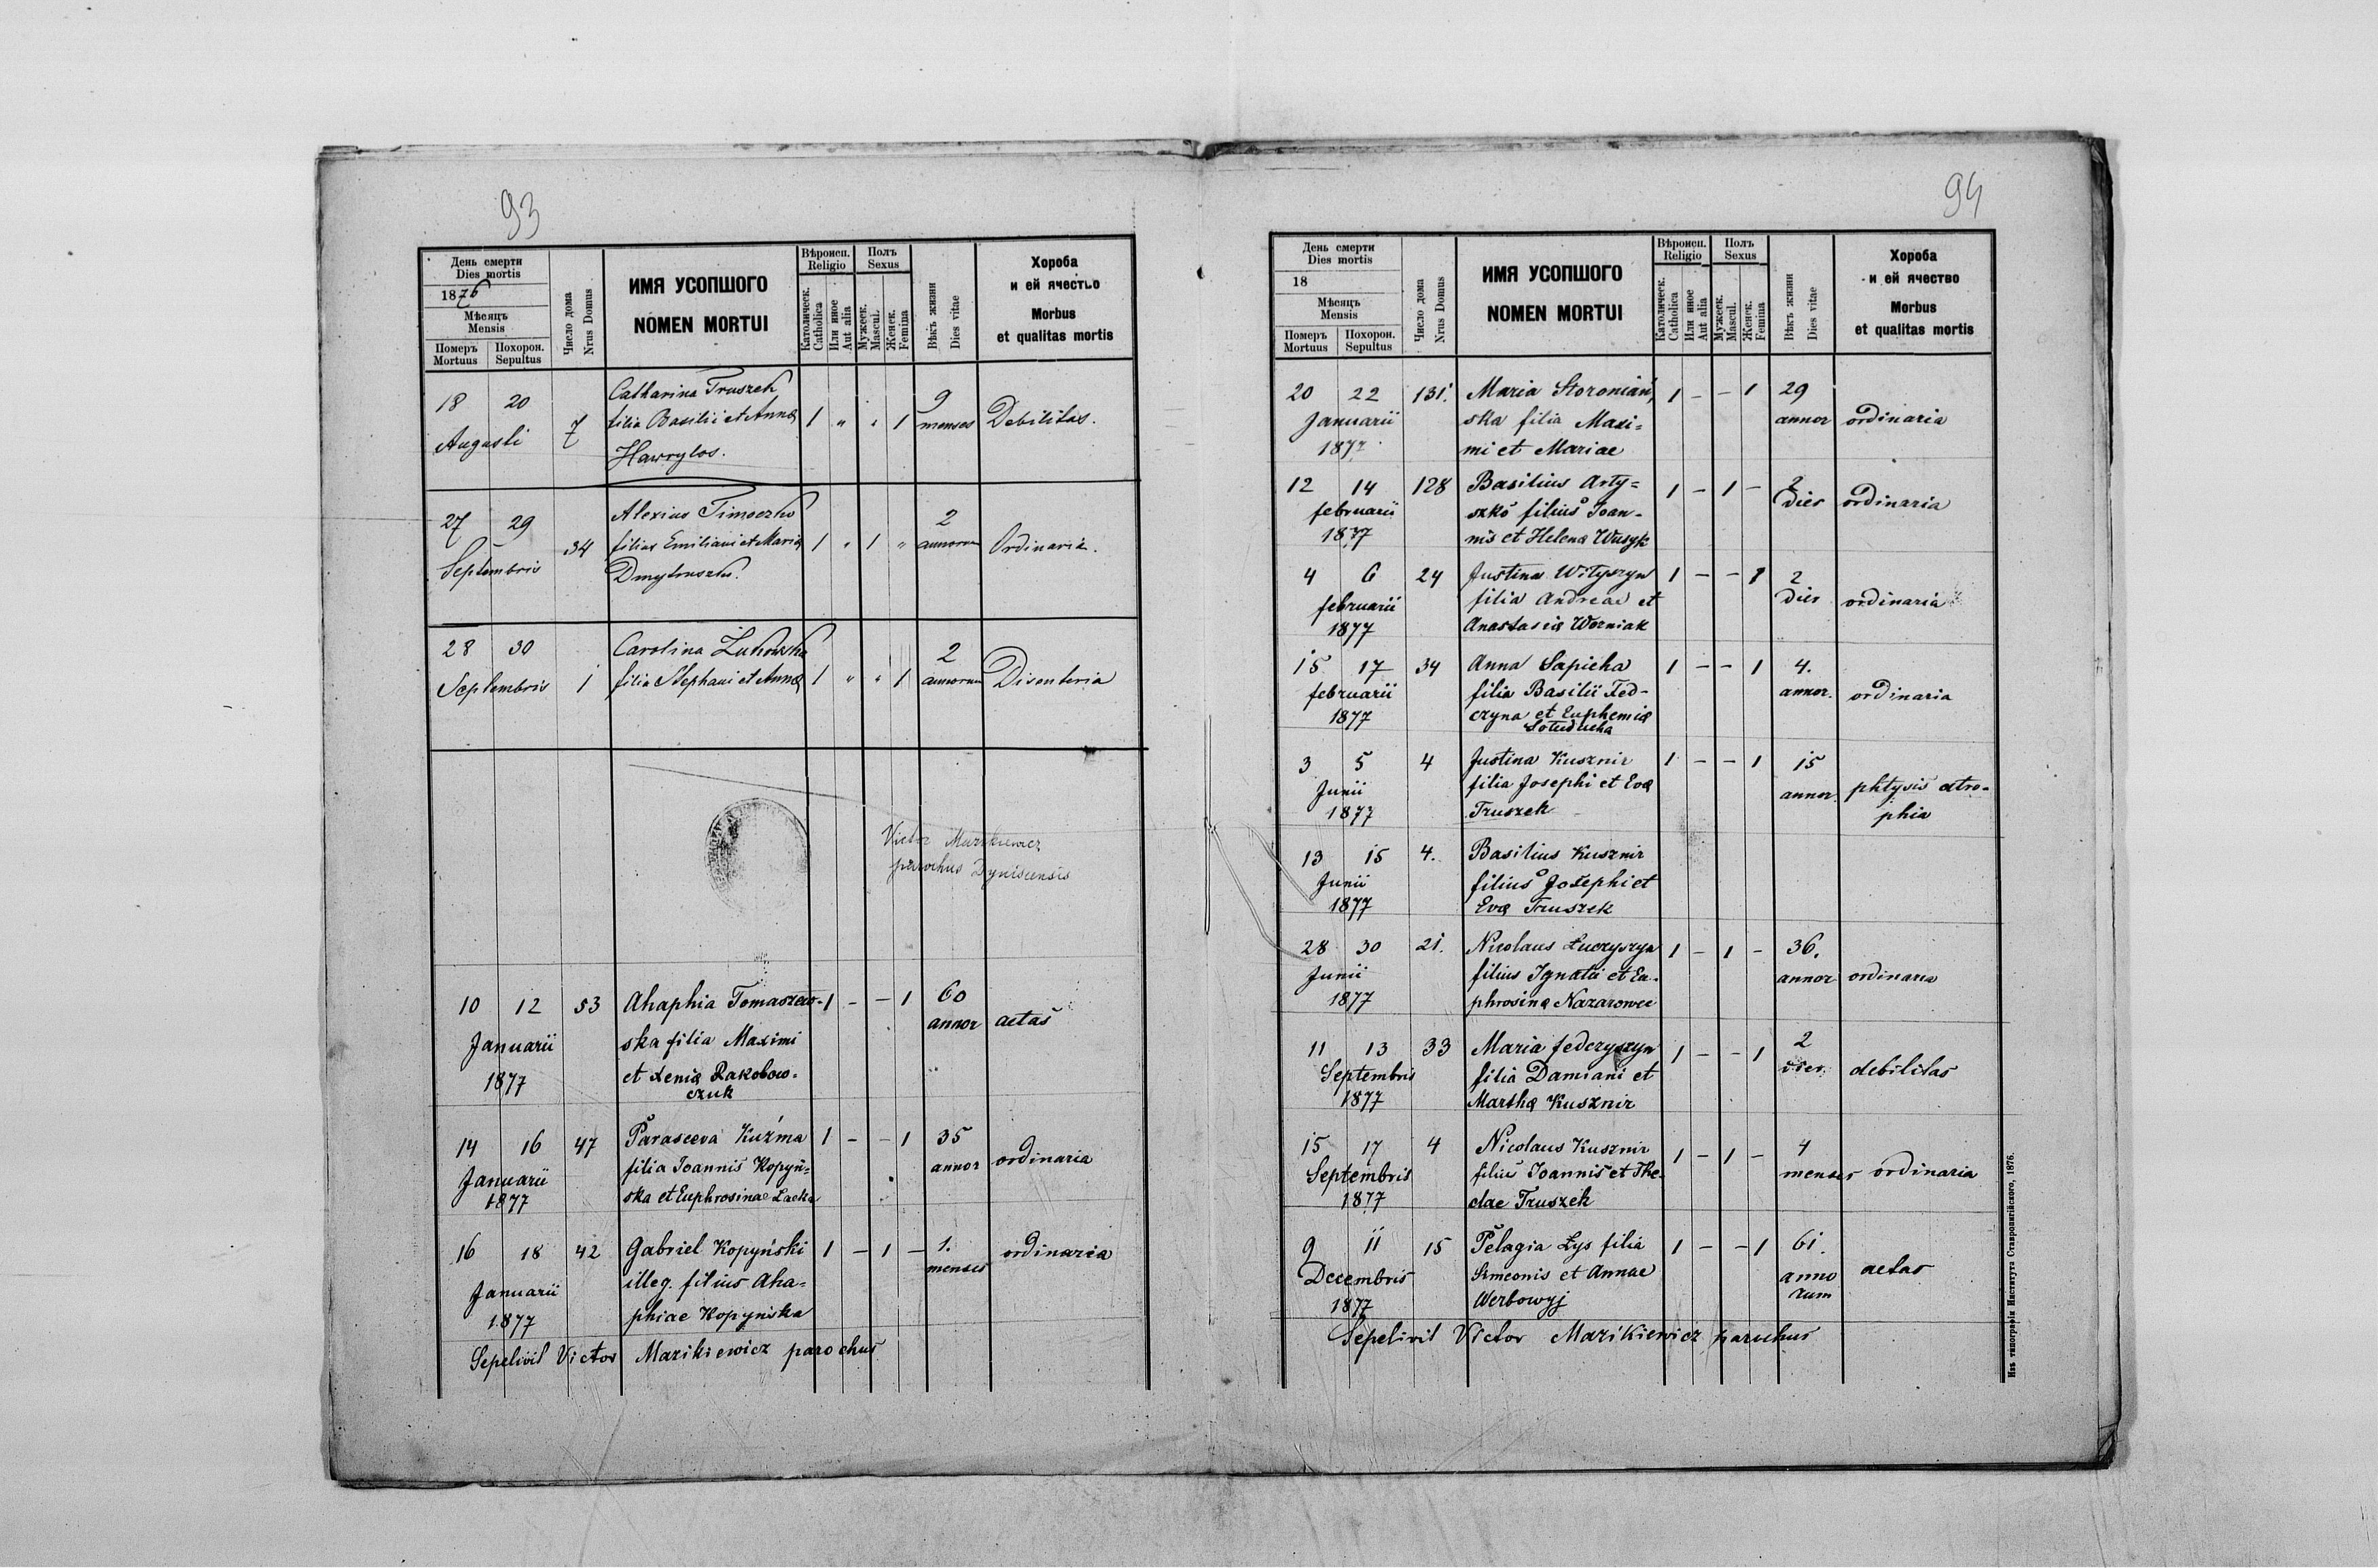 93
День смерти
Dies mortis
1876
Мѣсяцъ
Mensis
Померъ Mortuus
Похорон. Sepultus
Число дома
Nrus Domus
ИМЯ УСОПШОГО
NOMEN MORTUI
Вѣроисп.
Religio
Католическ.
Catholica
Или иное
Aut alia
Полъ
Sexus
Мужеск.
Mascul.
Женск.
Femina
Вѣкъ жизни
Dies vitae
Хороба
и ей ячество
Morbus
et qualitas mortis
18 20 7 Catharina Truszek 1 " " 1 9 Debilitas.
Augusti filia Basilii et Annæ menses
Hawrylos.
27 29 34 Alexius Timoczko 1 " 1 " 2 Ordinaria.
Septembris filius Emiliani et Mariæ annorum
Dmytruszko.
28 30 1 Carolina Żukowska 1 " " 1 2 Disenteria
Septembris filia Stephani et Annæ annorum
Victor Mazikiewicz
parochus Dyniscensis
10 12 53 Ahaphia Tomaszew- 1 - - 1 60 aetas
Januarii ska filia Maximi annor
1877 et Xeniæ Rakobow-
czuk
14 16 47 Parasceva Kuźma 1 - - 1 35 ordinaria
Januarii filia Joannis Kopyń- annor
1877 ska et Euphrosinae Lacka
16 18 42 Gabriel Kopyński 1 - 1 - 1. ordinaria
Januarii illeg. filius Aha- menses
1877 phiae Kopyńska
Sepelivit Victor Mazikiewicz parochus
94
День смерти
Dies mortis
18
Мѣсяцъ
Mensis
Померъ Mortuus
Похорон. Sepultus
Число дома
Nrus Domus
ИМЯ УСОПШОГО
NOMEN MORTUI
Вѣроисп.
Religio
Католическ.
Catholica
Или иное
Aut alia
Полъ
Sexus
Мужеск.
Mascul.
Женск.
Femina
Вѣкъ жизни
Dies vitae
Хороба
и ей ячество
Morbus
et qualitas mortis
20 22 131. Maria Storoniań, 1 - - 1 29
Januarii ska filia Maxi= annor ordinaria
1877 mi et Mariae
12 14 128 Basilius Arty= 1 - 1 - 2
februarii szko filius Joan- dies ordinaria
1877 nis et Helenæ Wusyk
4 6 24 Justina Wityszyn 1 - - 1 2
februarii filia Andreae et dies ordinaria
1877 Anastasiæ Worniak
15 17 34 Anna Sapieha 1 - - 1 4.
februarii filia Basilii Fed- annor. ordinaria
1877 czyna et Euphemiæ
Sołuducha
3 5 4 Justina Kusznir 1 - - 1 15
Junii filia Josephi et Evæ annor. phtysis atro-
1877 Truszek phia
13 15 4. Basilius Kusznir
Junii filius Josephi et
1877 Evæ Truszek
28 30 21. Nicolaus Łuczyszyn 1 - 1 - 36.
Junii filius Ignatii et Eu- annor ordinaria
1877 phrosinæ Nazarowec
11 13 33 Maria Fedczyszyn 1 - - 1 2
Septembris filia Damiani et dies. debilitas
1877 Marthæ Kusznir
15 17 4 Nicolaus Kusznir 1 - 1 - 4
Septembris filius Joannis et The- menses ordinaria
1877 clae Truszek
9 11 15 Pelagia Lys filia 1 - - 1 61.
Decembris Simeonis et Annae anno aetas
1877 Werbowyj rum
Sepelivit Victor Mazikiewicz paruchus
Изъ типографіи Института Ставропигійского, 1876.